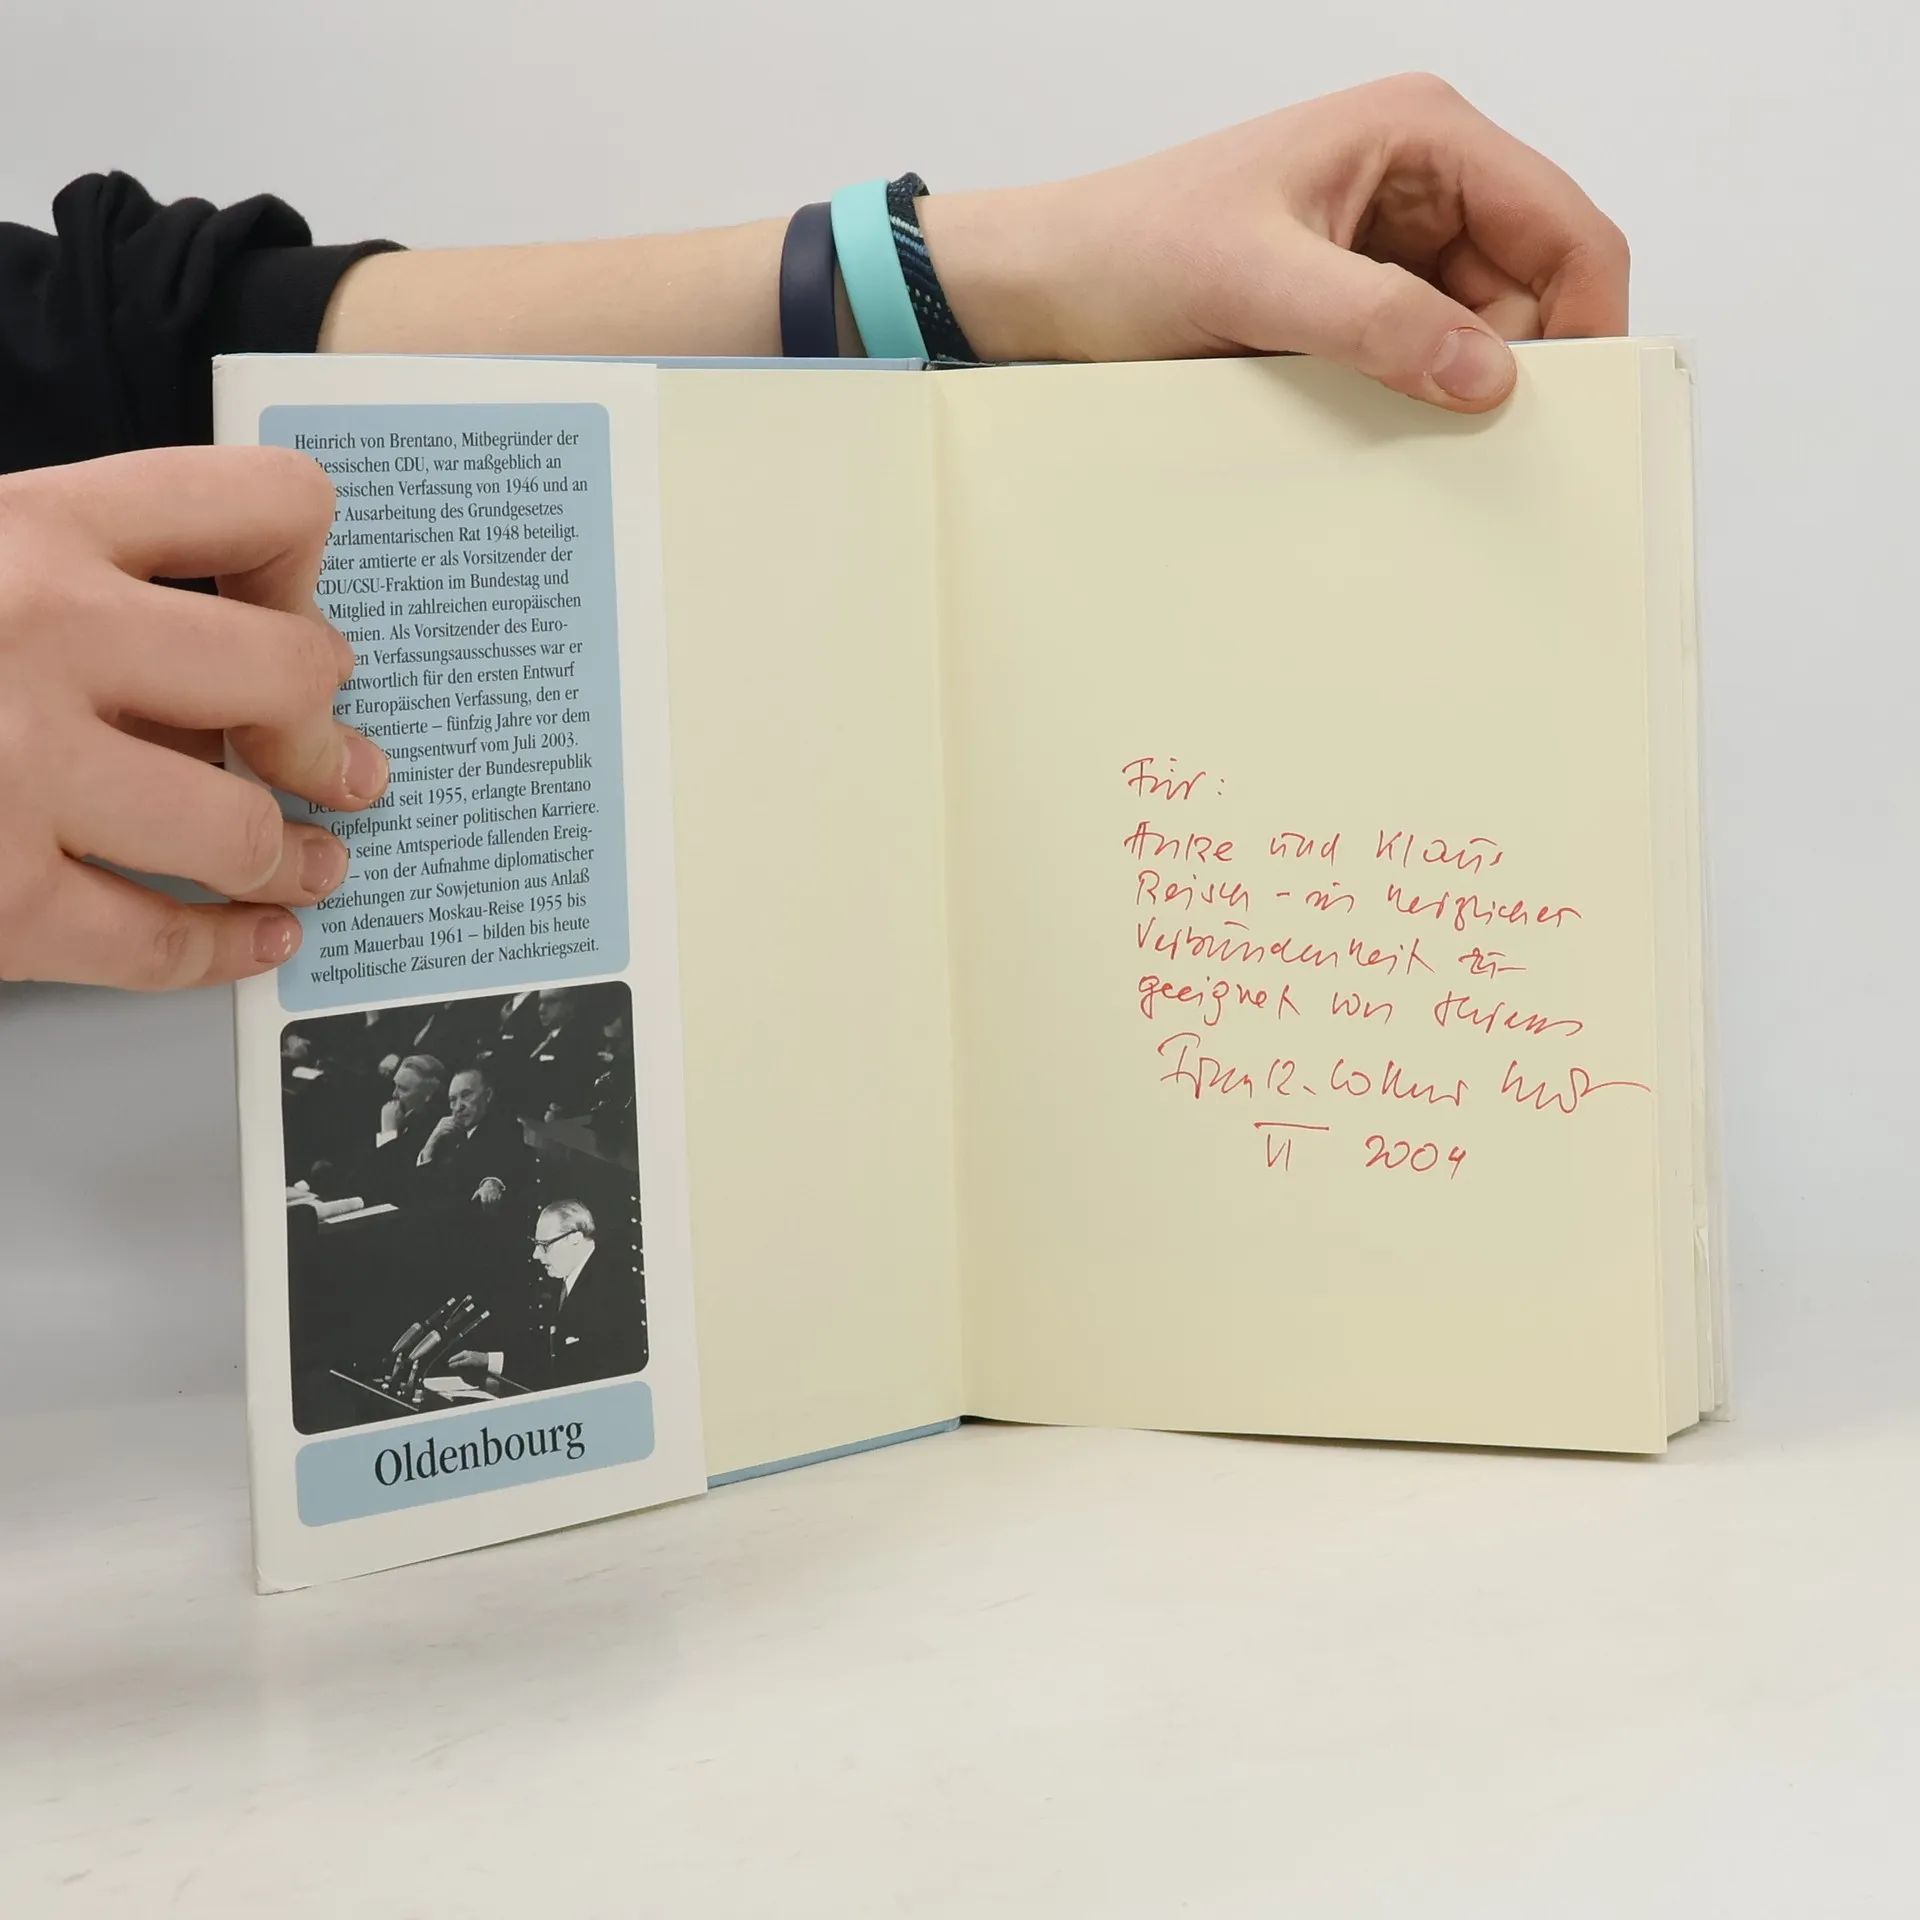 Heinrich von Brentano, Mitbegründer der
hessischen CDU, war maßgeblich an
ssischen Verfassung von 1946 und an
r Ausarbeitung des Grundgesetzes
Parlamentarischen Rat 1948 beteiligt.
päter amtierte er als Vorsitzender der
CDU/CSU-Fraktion im Bundestag und
Mitglied in zahlreichen europäischen
emien. Als Vorsitzender des Euro-
en Verfassungsausschusses war er
antwortlich für den ersten Entwurf
ner Europäischen Verfassung, den er
räsentierte – fünfzig Jahre vor dem
sungsentwurf vom Juli 2003.
nminister der Bundesrepublik
and seit 1955, erlangte Brentano
Gipfelpunkt seiner politischen Karriere.
n seine Amtsperiode fallenden Ereig-
– von der Aufnahme diplomatischer
Beziehungen zur Sowjetunion aus Anlaß
von Adenauers Moskau-Reise 1955 bis
zum Mauerbau 1961 – bilden bis heute
weltpolitische Zäsuren der Nachkriegszeit.
Oldenbourg
Für:
Anke und Klaus
Reisch - in herzlicher
Verbundenheit zu-
geeignet von Ihrem
Frank-Lothar
VI 2004